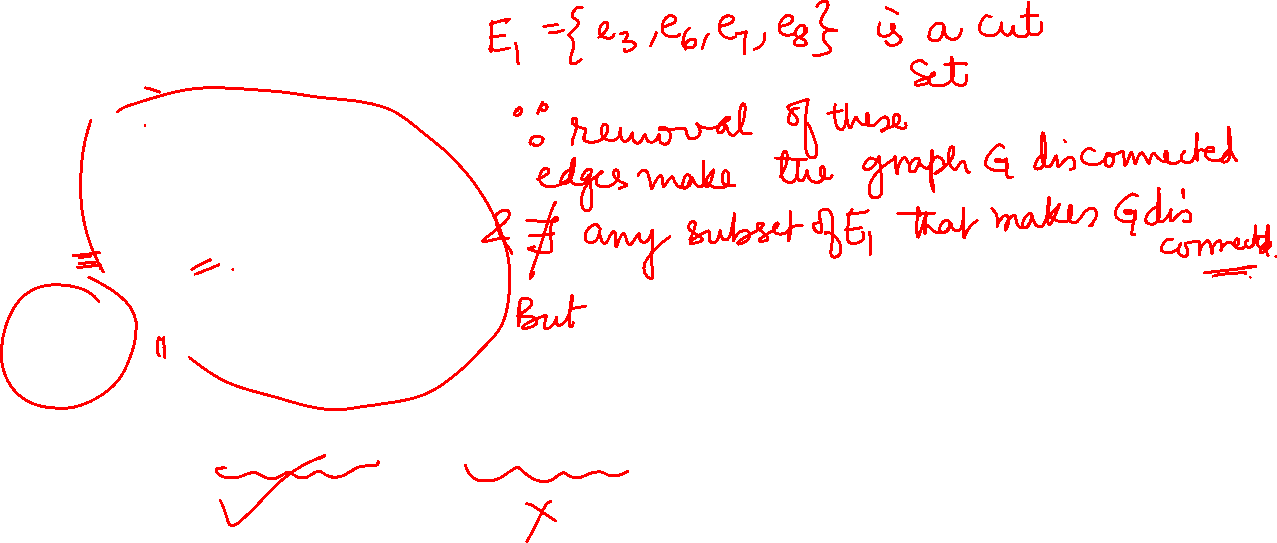 E₁ = {e₃, e₆, e₇, e₈} is a cut
set
∵ removal of these
edges make the graph G disconnected
& ∄ any subset of E₁ that makes G dis
connected.
But